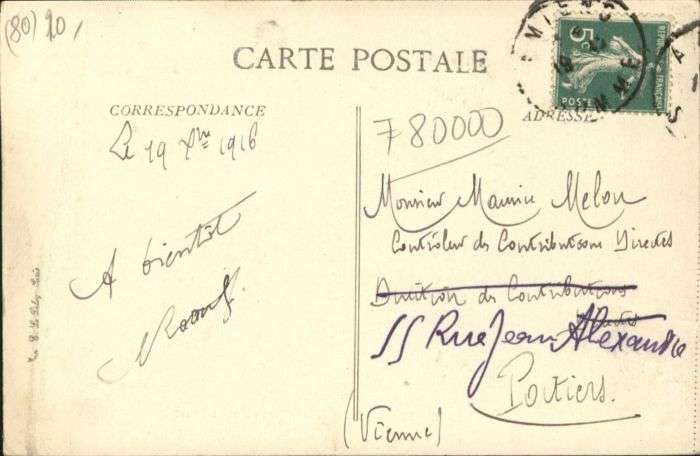 (80) 20,
CARTE POSTALE
CORRESPONDANCE
Le 19 Xbre 1916
A bientôt
Raoul.
ADRESSE
780000
Monsieur Maurice Melou
Controleur des Contributions Directes
Direction des Contributions
Directes
55 Rue Jean Alexandre
Poitiers.
(Vienne)
AMIENS
SOMME
5c
POSTES
REPUBLIQUE FRANÇAISE